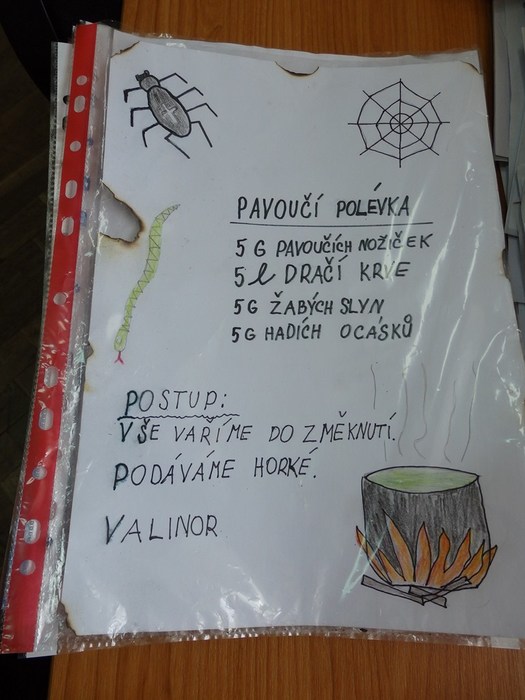 PAVOUČÍ POLÉVKA
5 G PAVOUČÍCH NOŽIČEK
5 l DRAČÍ KRVE
5 G ŽABÝCH SLYN
5 G HADÍCH OCÁSKŮ
POSTUP:
VŠE VAŘÍME DO ZMĚKNUTÍ.
PODÁVÁME HORKÉ.
VALINOR